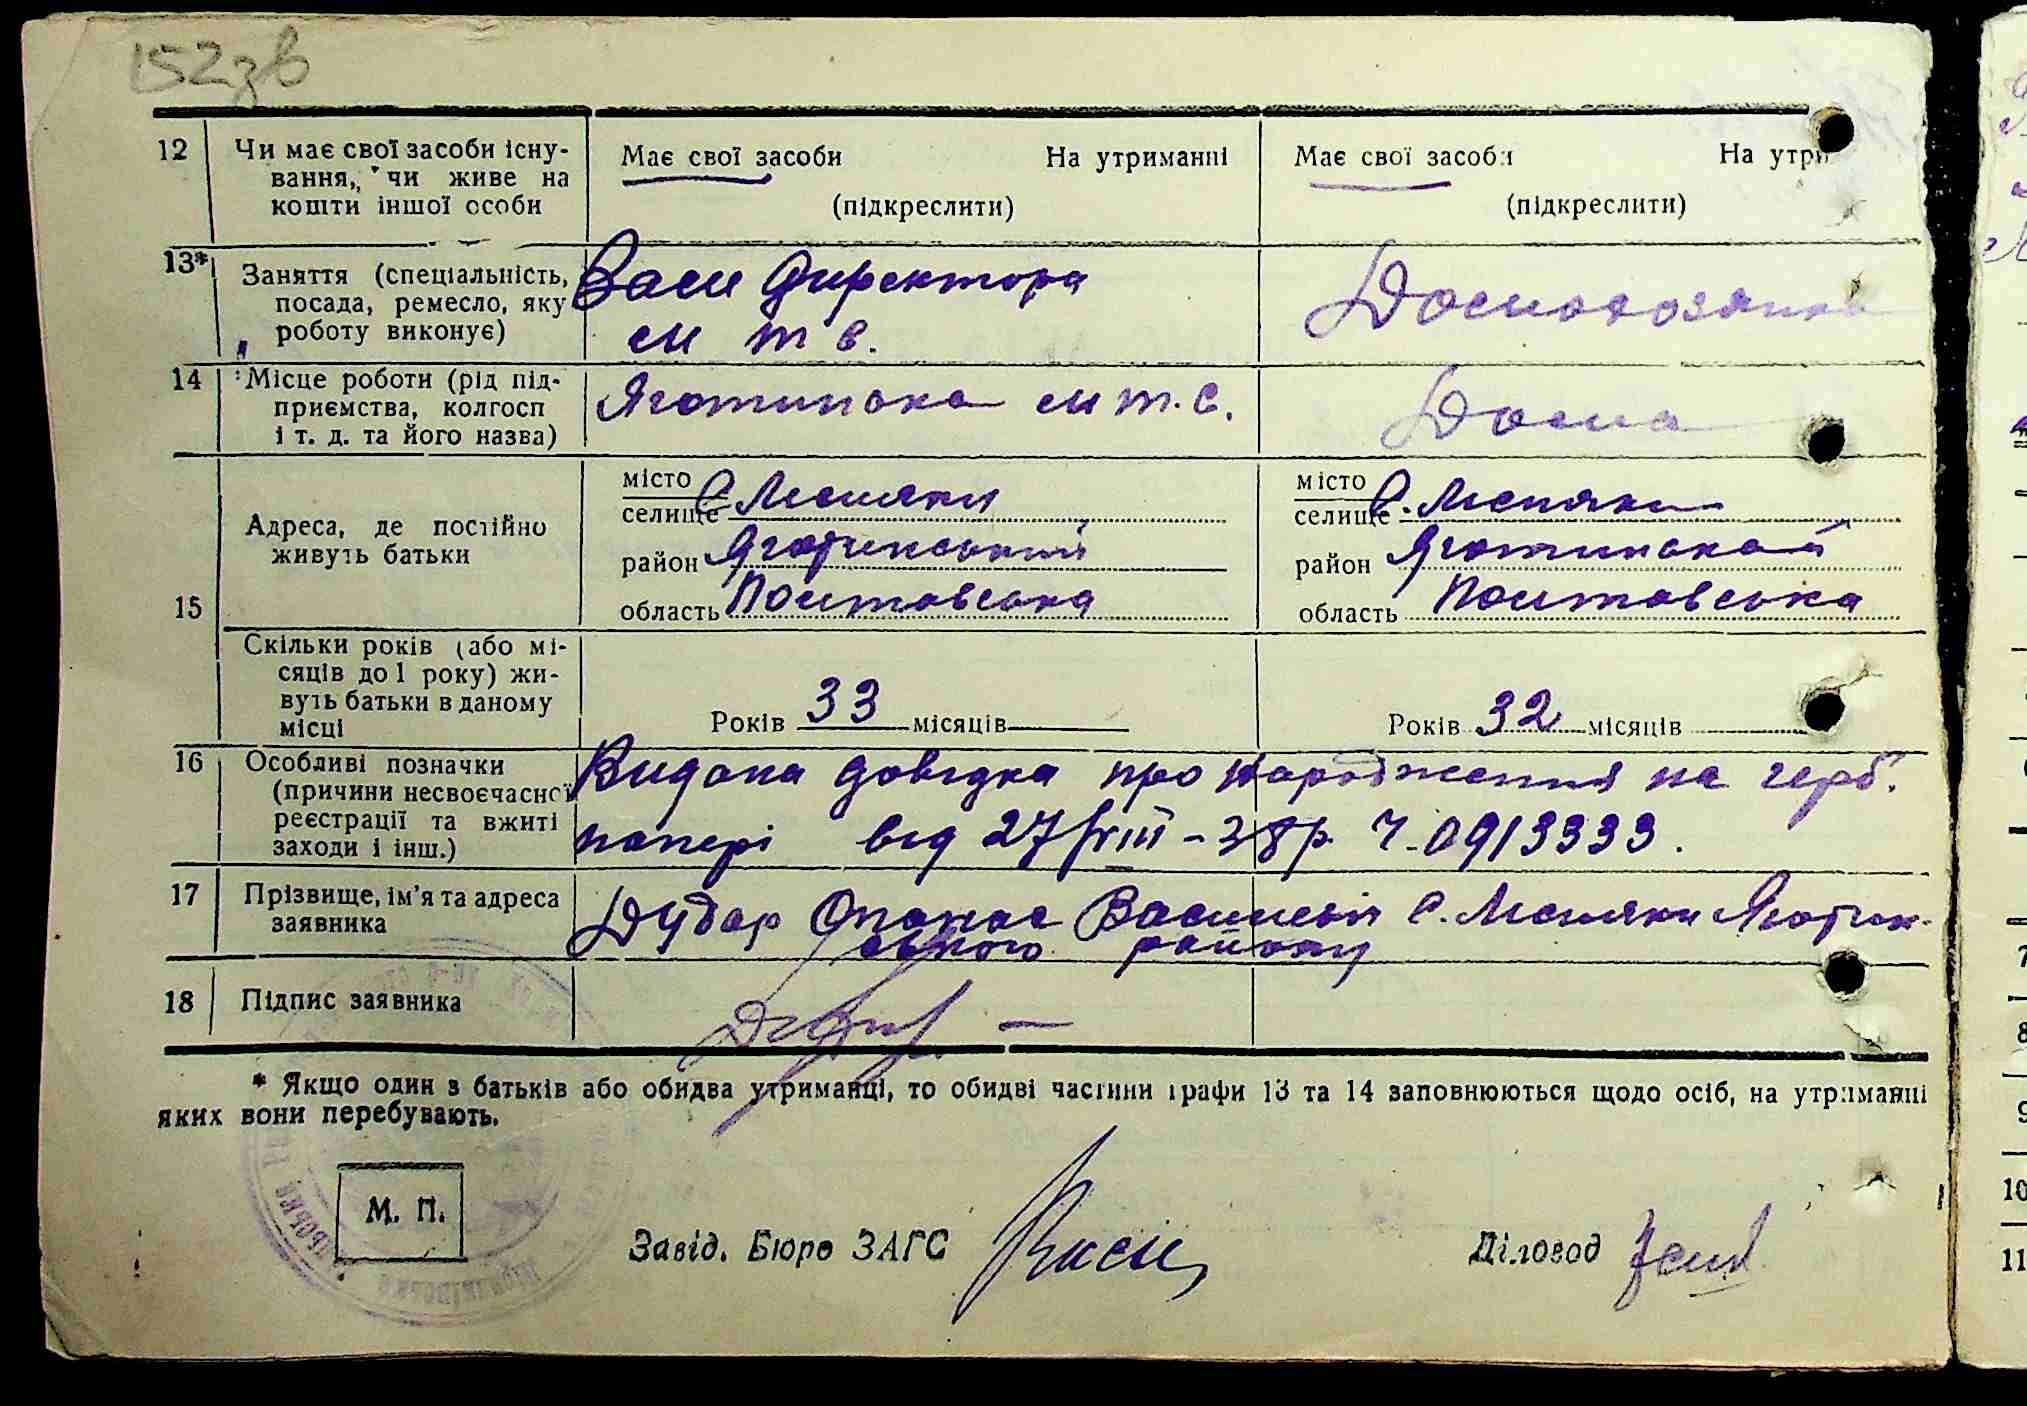 152зв
12 Чи має свої засоби існу- Має свої засоби На утриманні Має свої засоби На утри
вання, чи живе на
кошти іншої особи (підкреслити) (підкреслити)
13* Заняття (спеціальність, директора Домохозяйка
посада, ремесло, яку
роботу виконує) м т с.
14 Місце роботи (рід під- Яготинська м т. с. Дома
приємства, колгосп
і т. д. та його назва)
місто місто
селище с. Лемляки селище с. Лемляки
15 Адреса, де постійно район Яготинський район Яготинський
живуть батьки область Полтавська область Полтавська
Скільки років (або мі-
сяців до 1 року) жи-
вуть батьки в даному
місці Років 33 місяців Років 32 місяців
16 Особливі позначки Видана довідка про народження на герб.
(причини несвоєчасної
реєстрації та вжиті папері від 27/VIII-38р. Ч-0913333.
заходи і інш.)
17 Прізвище, ім'я та адреса Дудар Опанас Васильов с. Лемляки Яготин-
заявника ського району
18 Підпис заявника
* Якщо один з батьків або обидва утриманці, то обидві частини графи 13 та 14 заповнюються щодо осіб, на утриманні
яких вони перебувають.
М. П.
Завід. Бюро ЗАГС Діловод
7
8
9
10
11